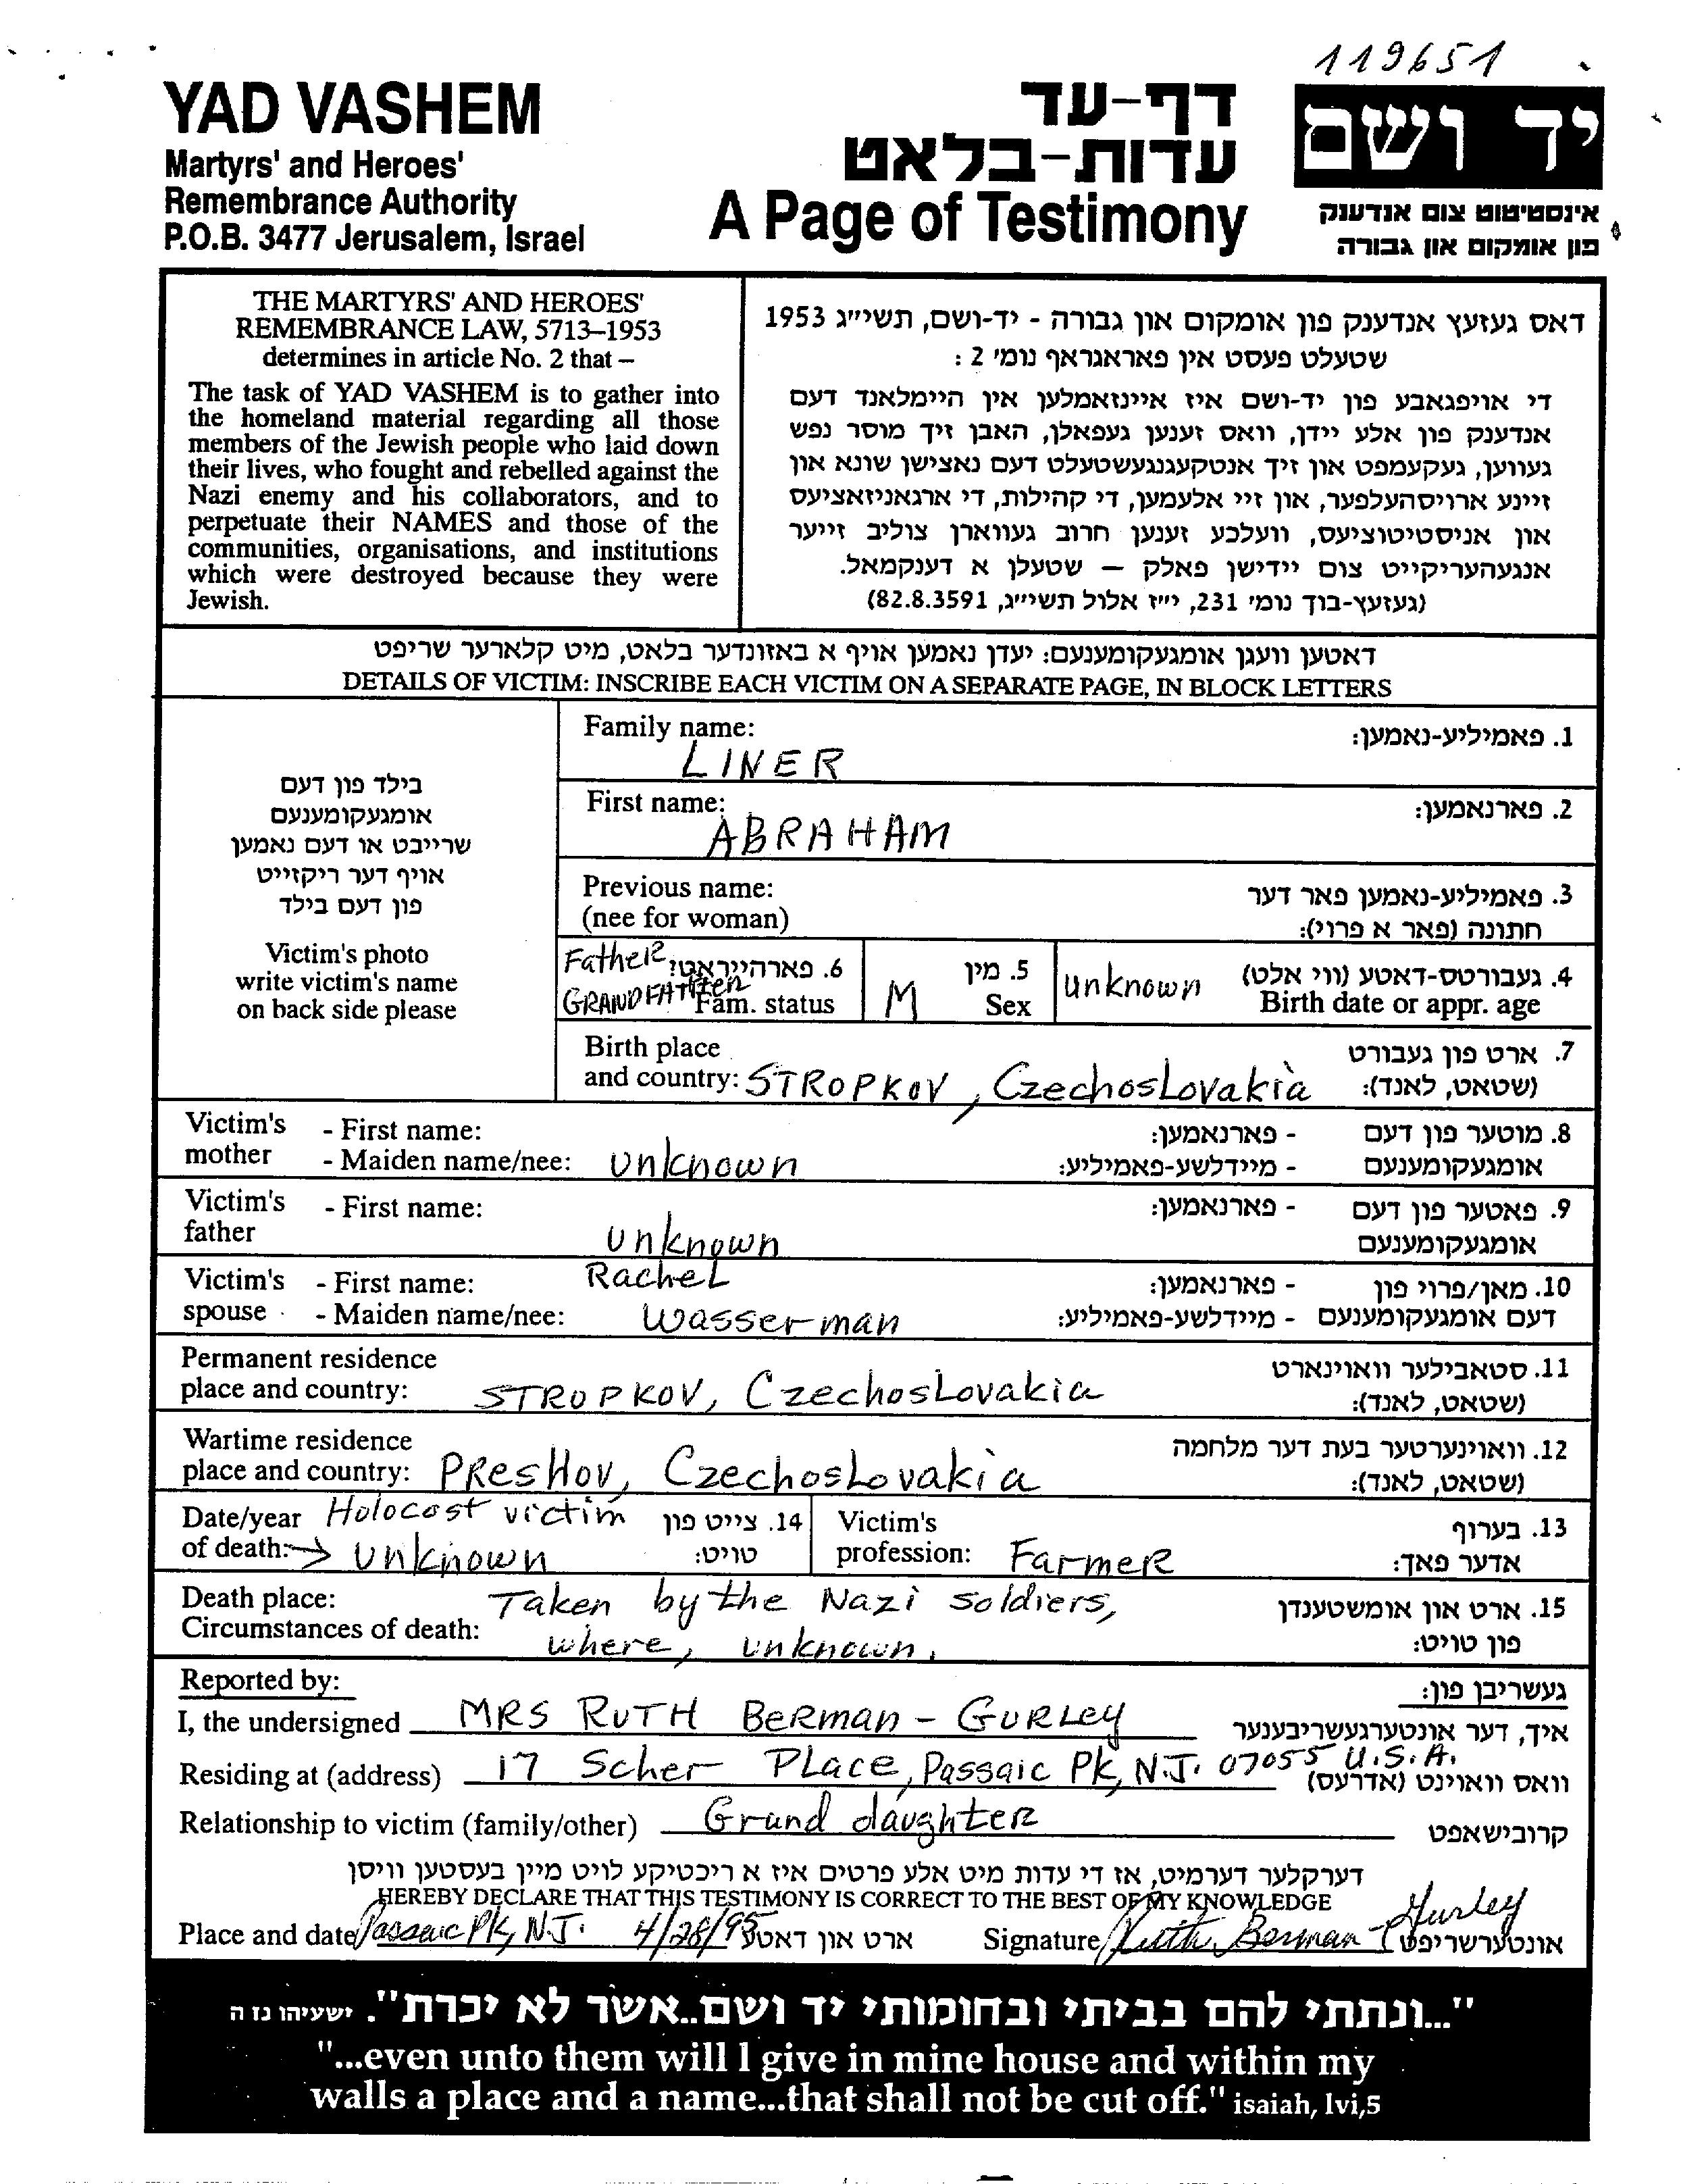 119651
YAD VASHEM
Martyrs' and Heroes'
Remembrance Authority
P.O.B. 3477 Jerusalem, Israel
דף-עד
עדות-בלאט
A Page of Testimony
יד ושם
אינסטיטוט צום אנדענק
פון אומקום און גבורה
THE MARTYRS' AND HEROES'
REMEMBRANCE LAW, 5713–1953
determines in article No. 2 that –
The task of YAD VASHEM is to gather into
the homeland material regarding all those
members of the Jewish people who laid down
their lives, who fought and rebelled against the
Nazi enemy and his collaborators, and to
perpetuate their NAMES and those of the
communities, organisations, and institutions
which were destroyed because they were
Jewish.
דאס געזעץ אנדענק פון אומקום און גבורה - יד-ושם, תשי״ג 1953
שטעלט פעסט אין פאראגראף נומ׳ 2 :
די אויפגאבע פון יד-ושם איז איינזאמלען אין היימלאנד דעם
אנדענק פון אלע יידן, וואס זענען געפאלן, האבן זיך מוסר נפש
געווען, געקעמפט און זיך אנטקעגנגעשטעלט דעם נאצישן שונא און
זיינע ארויסהעלפער, און זיי אלעמען, די קהילות, די ארגאניזאציעס
און אניסטיטוציעס, וועלכע זענען חרוב געווארן צוליב זייער
אנגעהעריקייט צום יידישן פאלק – שטעלן א דענקמאל.
(געזעץ-בוך נומ׳ 231, י״ז אלול תשי״ג, 82.8.3591)
דאטען וועגן אומגעקומענעם: יעדן נאמען אויף א באזונדער בלאט, מיט קלארער שריפט
DETAILS OF VICTIM: INSCRIBE EACH VICTIM ON A SEPARATE PAGE, IN BLOCK LETTERS
בילד פון דעם
אומגעקומענעם
שרייבט או דעם נאמען
אויף דער ריקזייט
פון דעם בילד
Victim's photo
write victim's name
on back side please
Family name:
1. פאמיליע-נאמען:
LINER
First name:
2. פארנאמען:
ABRAHAM
Previous name:
(nee for woman)
3. פאמיליע-נאמען פאר דער
חתונה (פאר א פרוי):
Father
GRANDFATHER
6. פארהייראט?
Fam. status
M
5. מין
Sex
Unknown
4. געבורטס-דאטע (ווי אלט)
Birth date or appr. age
Birth place
and country: STROPKOV, CzechosLovakia
7. ארט פון געבורט
(שטאט, לאנד):
Victim's mother
- First name:
- Maiden name/nee: Unknown
- פארנאמען:
- מיידלשע-פאמיליע:
8. מוטער פון דעם
אומגעקומענעם
Victim's father
- First name:
unknown
- פארנאמען:
9. פאטער פון דעם
אומגעקומענעם
Victim's spouse
- First name: RacheL
- Maiden name/nee: Wasserman
- פארנאמען:
- מיידלשע-פאמיליע:
10. מאן/פרוי פון
דעם אומגעקומענעם
Permanent residence
place and country: STROPKOV, CzechosLovakia
11. סטאבילער וואוינארט
(שטאט, לאנד):
Wartime residence
place and country: PResHov, CzechosLovakia
12. וואוינערטער בעת דער מלחמה
(שטאט, לאנד):
Date/year Holocost victim
of death: → Unknown
14. צייט פון
טויט:
Victim's
profession: FarmeR
13. בערוף
אדער פאך:
Death place: Taken by the Nazi soldiers,
Circumstances of death: where, unknown.
15. ארט און אומשטענדן
פון טויט:
Reported by:
געשריבן פון:
I, the undersigned MRS RUTH BeRman - GURLey
איך, דער אונטערגעשריבענער
Residing at (address) 17 Scher PLace, Passaic Pk, N.J. 07055 U.S.A.
וואס וואוינט (אדרעס)
Relationship to victim (family/other) Grand daughter
קרובישאפט
דערקלער דערמיט, אז די עדות מיט אלע פרטים איז א ריכטיקע לויט מיין בעסטען וויסן
HEREBY DECLARE THAT THIS TESTIMONY IS CORRECT TO THE BEST OF MY KNOWLEDGE
Place and date Passaic Pk, N.J. 4/28/95 ארט און דאטע
Signature Ruth Berman - Gurley אונטערשריפט
"...ונתתי להם בביתי ובחומותי יד ושם..אשר לא יכרת". ישעיהו נז ה
"...even unto them will I give in mine house and within my
walls a place and a name...that shall not be cut off." isaiah, lvi,5